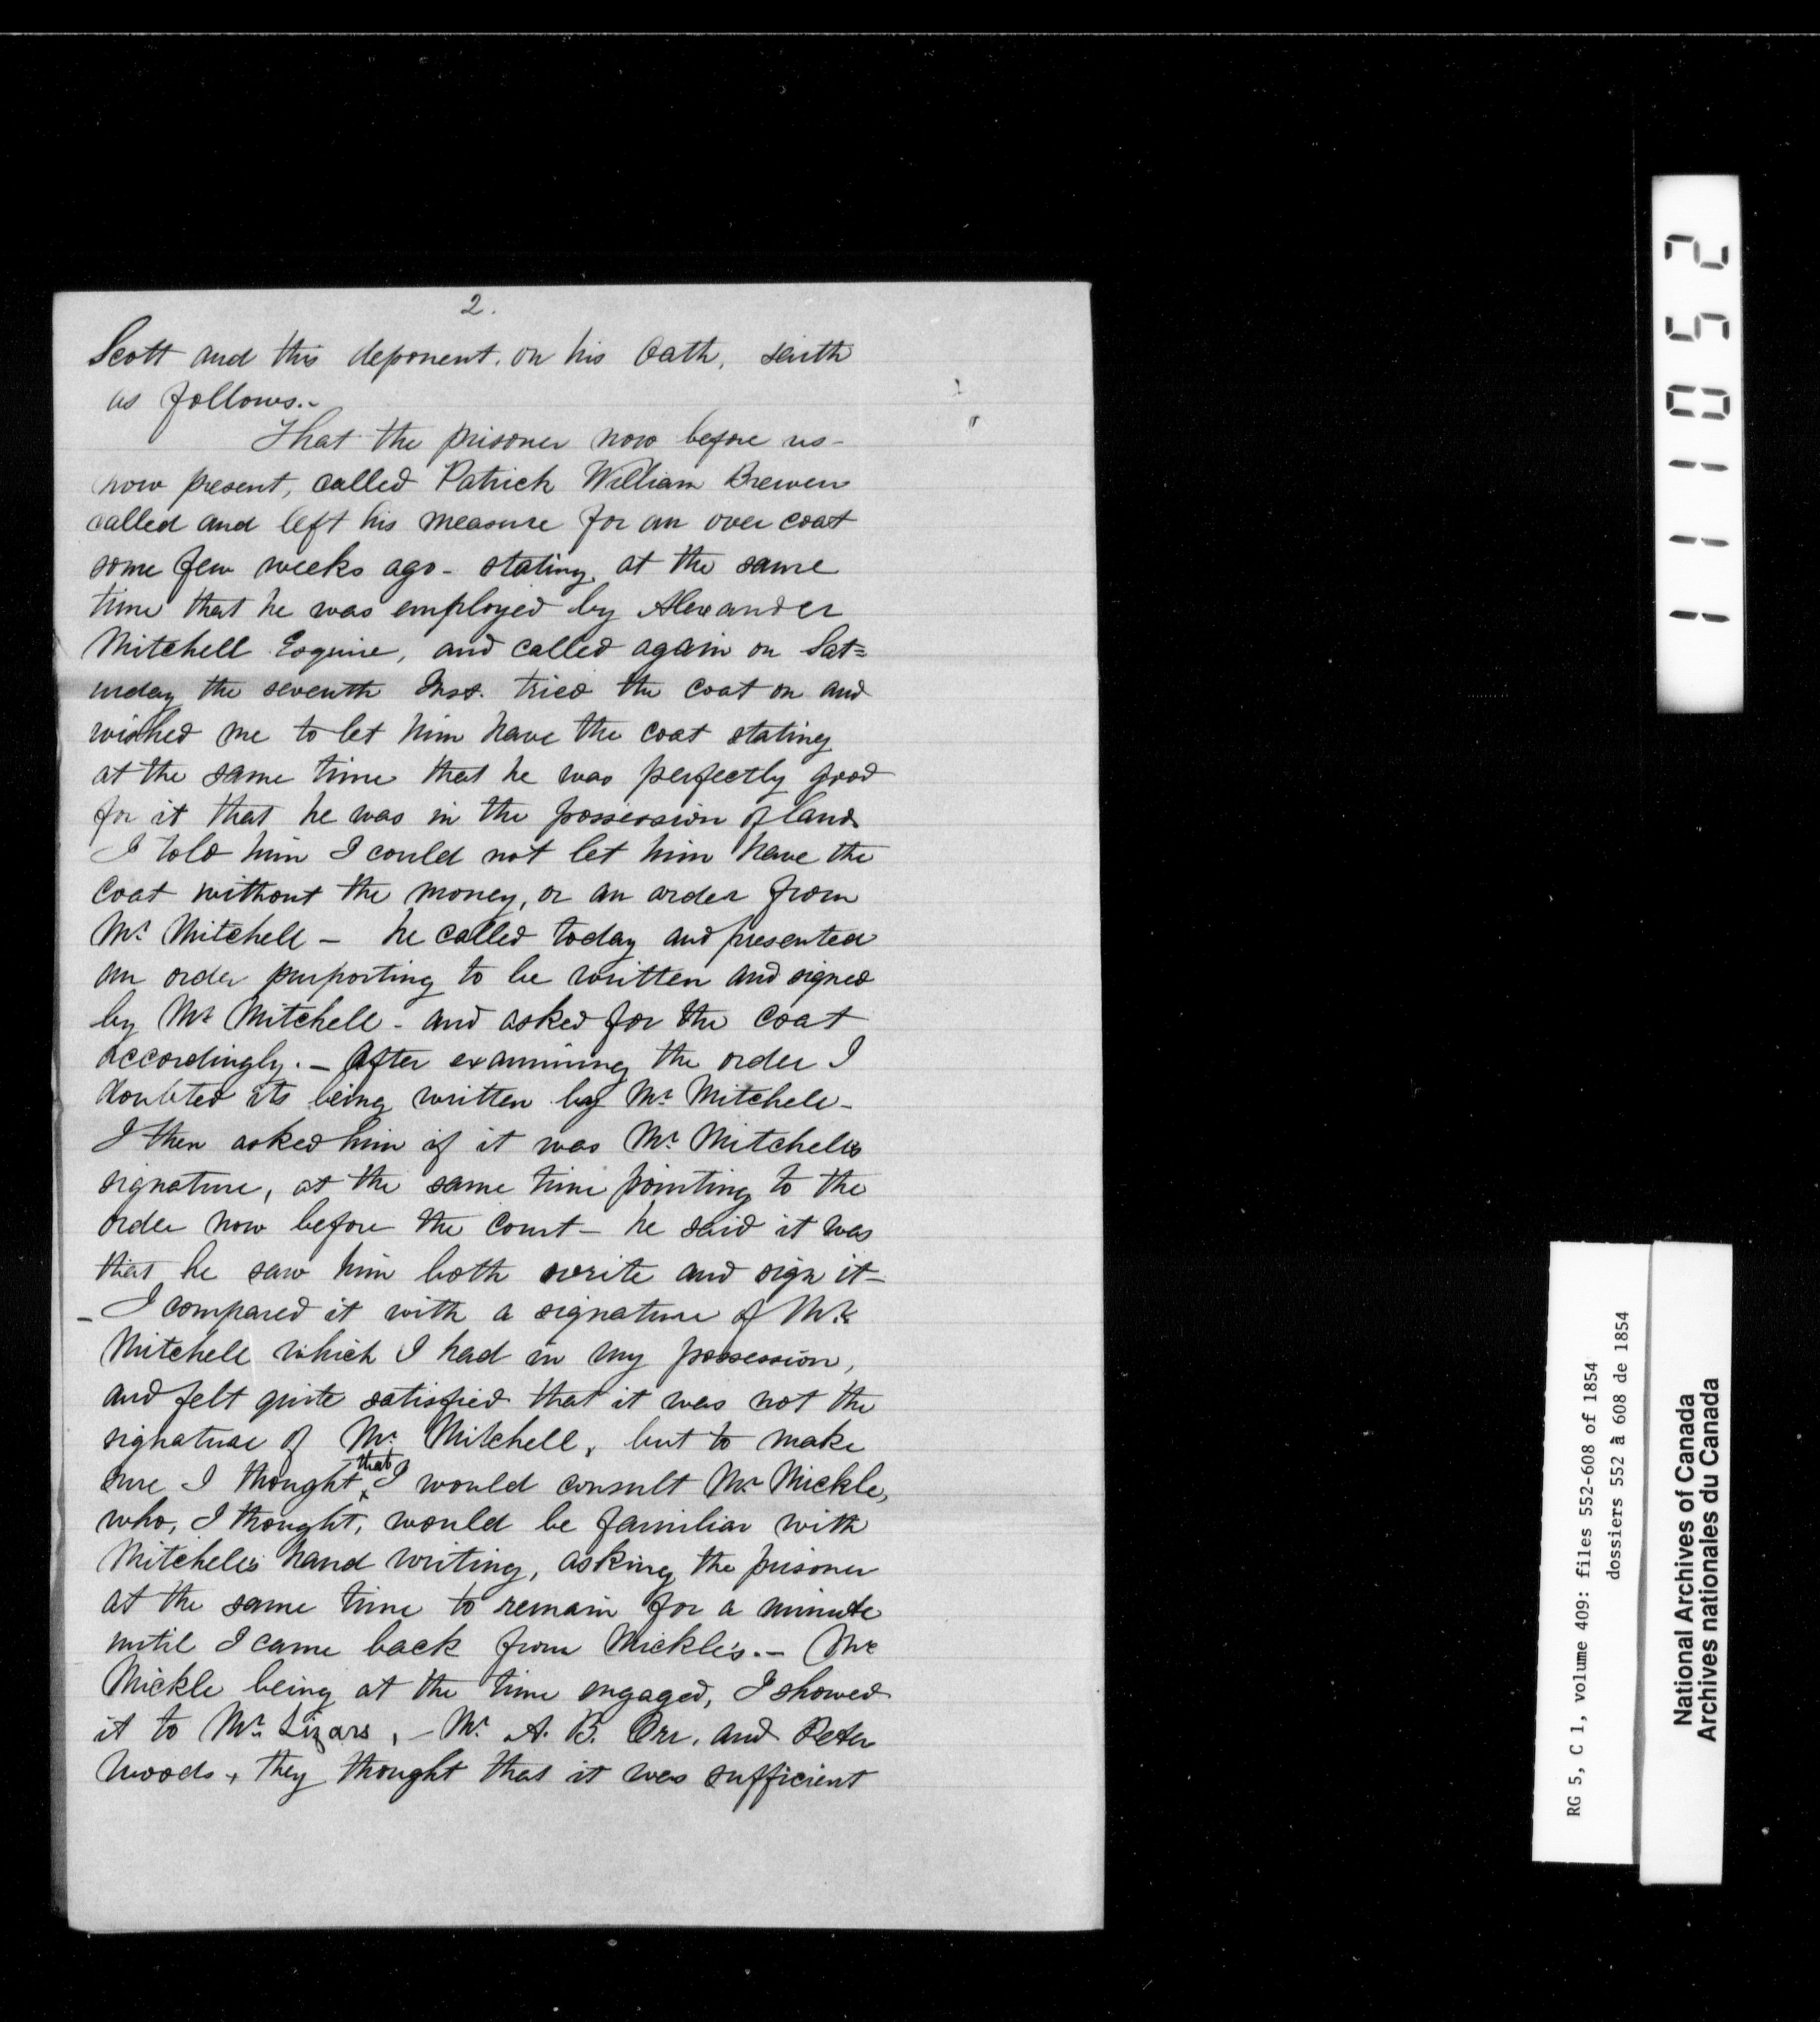 2.
Scott and this deponent. on his Oath, saith
as follows.-
That the prisoner now before us-
now present, called Patrick William Brewen
called and left his measure for an over coat
some few weeks ago - stating, at the same
time that he was employed by Alexander
Mitchell Esquire, and called again on Sat=
urday the seventh Inst. tried the coat on and
wished me to let him have the coat stating
at the same time that he was perfectly good
for it that he was in the possession of land
I told him I could not let him have the
coat without the money, or an order from
Mr. Mitchell - he called today and presented
an order purporting to be written and signed
by Mr Mitchell - and asked for the coat
accordingly. - After examining the order I
doubted its being written by Mr. Mitchell -
I then asked him if it was Mr. Mitchell's
signature, at the same time pointing to the
order now before the Court - he said it was
that he saw him both write and sign it -
- I compared it with a signature of Mr.
Mitchell which I had in my possession,
and felt quite satisfied that it was not the
signature of Mr. Mitchell, but to make
sure I thought that I would consult Mr. Mickle,
who, I thought, would be familiar with
Mitchell's hand writing, asking the prisoner
at the same time to remain for a minute
until I came back from Mickle's. - Mr.
Mickle being at the time engaged, I showed
it to Mr. Lizars, - Mr. A. B. Orr. and Peter
Woods, they thought that it was sufficient
111052
RG 5, C 1, volume 409: files 552-608 of 1854
dossiers 552 à 608 de 1854
National Archives of Canada
Archives nationales du Canada